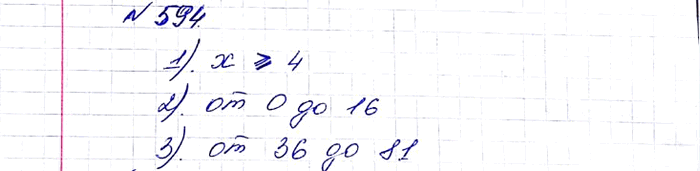 № 594.
1). x ⩾ 4
2). от 0 до 16
3). от 36 до 81